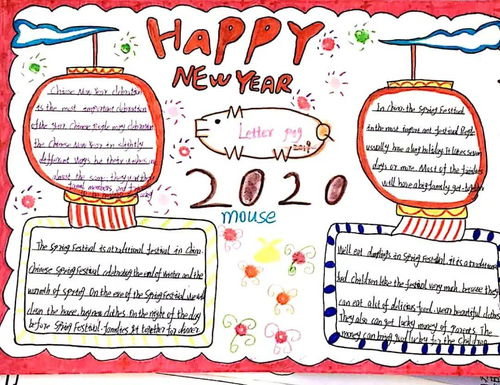 HAPPY
NEW YEAR
Chinese New Year celebration
is the most important celebration
of the year. Chinese people may celebrate
the Chinese New Year in slightly
different ways but their wishes
almost the same, they want their
family members and friends
In China the Spring Festival
is the most important festival People
usually have a big holiday. It is seven
days or more. Most of the families
will have a big family get-together
Letter pig
2019
2020
mouse
The Spring Festival is a traditional festival in China.
Chinese Spring Festival celebrating the end of winter and the
warmth of spring. On the eve of the Spring Festival we will
clean the house, buy new clothes. On the night of the day
before Spring Festival, families get together for dinner
We'll eat dumplings in Spring Festival, it is a traditional
food. Children like the festival very much, because they
can eat a lot of delicious food, wear beautiful clothes.
They also can get lucky money of parents. The
money can bring good lucky for the children